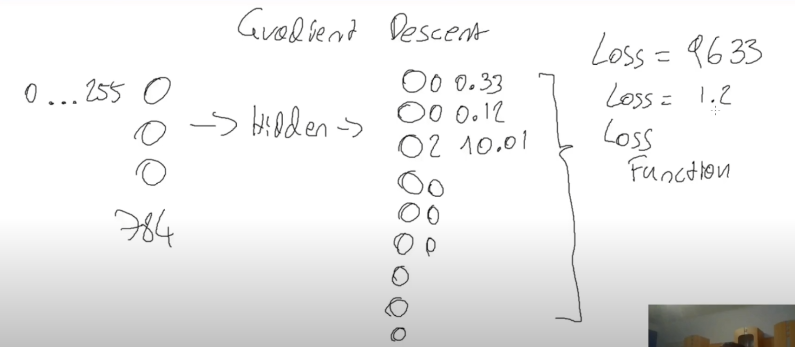 Gradient Descent
0...255
784
-> Hidden ->
0 0.33
0 0.12
2 10.01
0
0
0
Loss = 9633
Loss = 1.2
Loss
Function